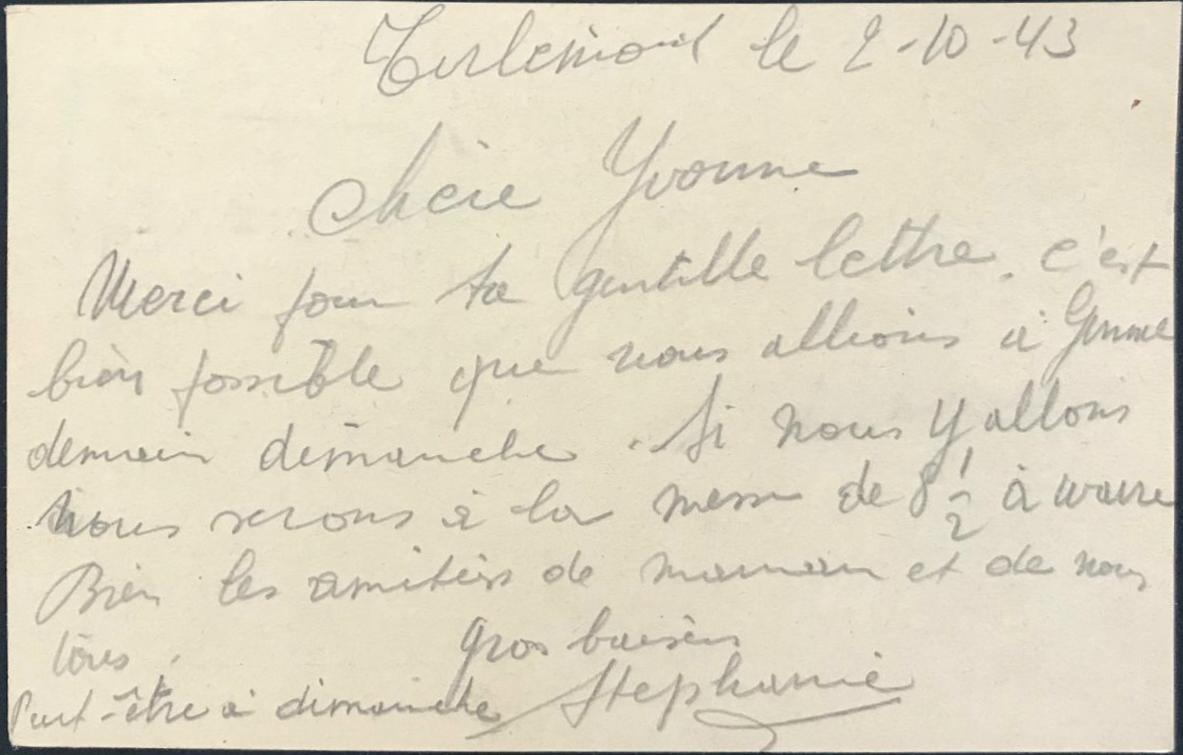 Tirlemont le 2-10-43
Chère Yvonne
Merci pour ta gentille lettre. C'est
bien possible que nous allions à
demain dimanche. Si nous y allons
nous serons à la messe de 8 1/2 à Wavre
Bien les amitiés de maman et de nous
tous. Gros baisers
Peut-être à dimanche Stephanie